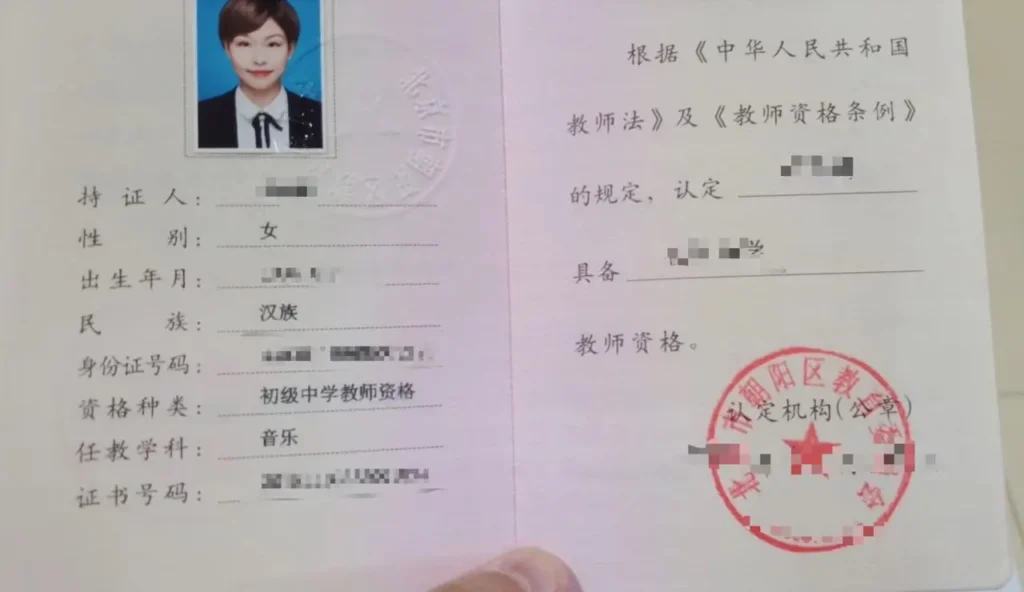 持证人：
性别：女
出生年月：
民族：汉族
身份证号码：
资格种类：初级中学教师资格
任教学科：音乐
证书号码：
根据《中华人民共和国
教师法》及《教师资格条例》
的规定，认定
具备
教师资格。
认定机构(公章)
北京市朝阳区教育委员会